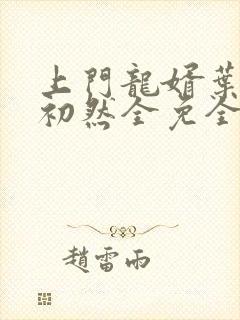 上門龍婿葉
初然全免全
趙雷雨